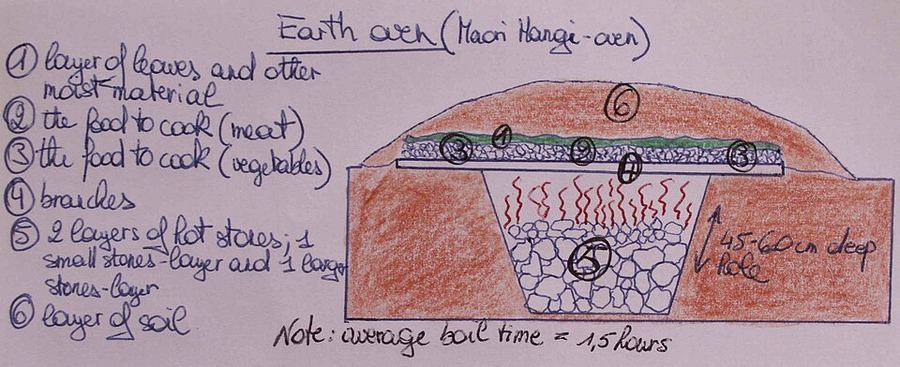 Earth oven (Maori Hangi-oven)
① layer of leaves and other
moist material
② the food to cook (meat)
③ the food to cook (vegetables)
④ branches
⑤ 2 layers of hot stones; 1
small stones-layer and 1 larger
stones-layer
⑥ layer of soil
6
3 1 2 3
4
5
45-60cm deep
hole
Note: average boil time = 1,5 hours